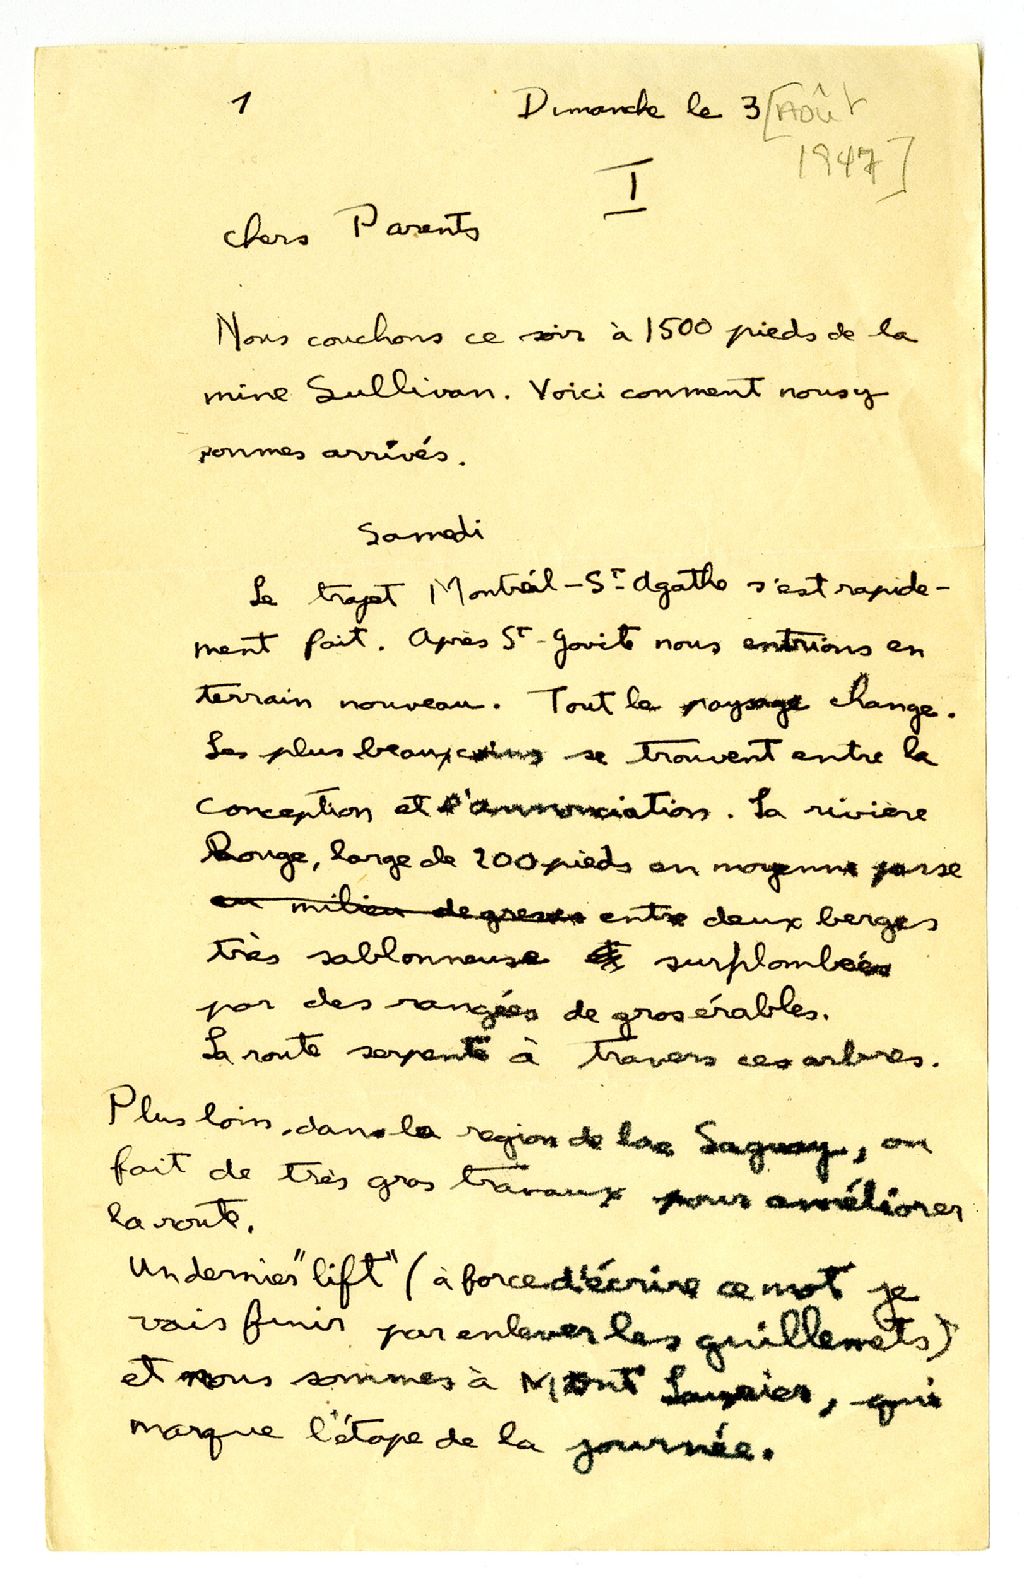 1 Dimanche le 3 [Août
1947]
I
chers Parents
Nous couchons ce soir à 1500 pieds de la
mine Sullivan. Voici comment nous y
sommes arrivés.
Samedi
Le trajet Montréal - St-Agathe s'est rapide-
ment fait. Après St-Jovite nous entrions en
terrain nouveau. Tout le paysage change.
Les plus beaux coins se trouvent entre la
conception et l'annonciation. La rivière
Rouge, large de 200 pieds en moyenne passe
au milieu de greses entre deux berges
très sablonneuse surplombées
par des rangées de gros érables.
La route serpente à travers ces arbres.
Plus loin, dans la region de lac Saguay, on
fait de très gros travaux pour améliorer
la route.
Un dernier "lift" (à force d'écrire ce mot je
vais finir par enlever les guillemets)
et nous sommes à Mont Laurier, qui
marque l'étape de la journée.